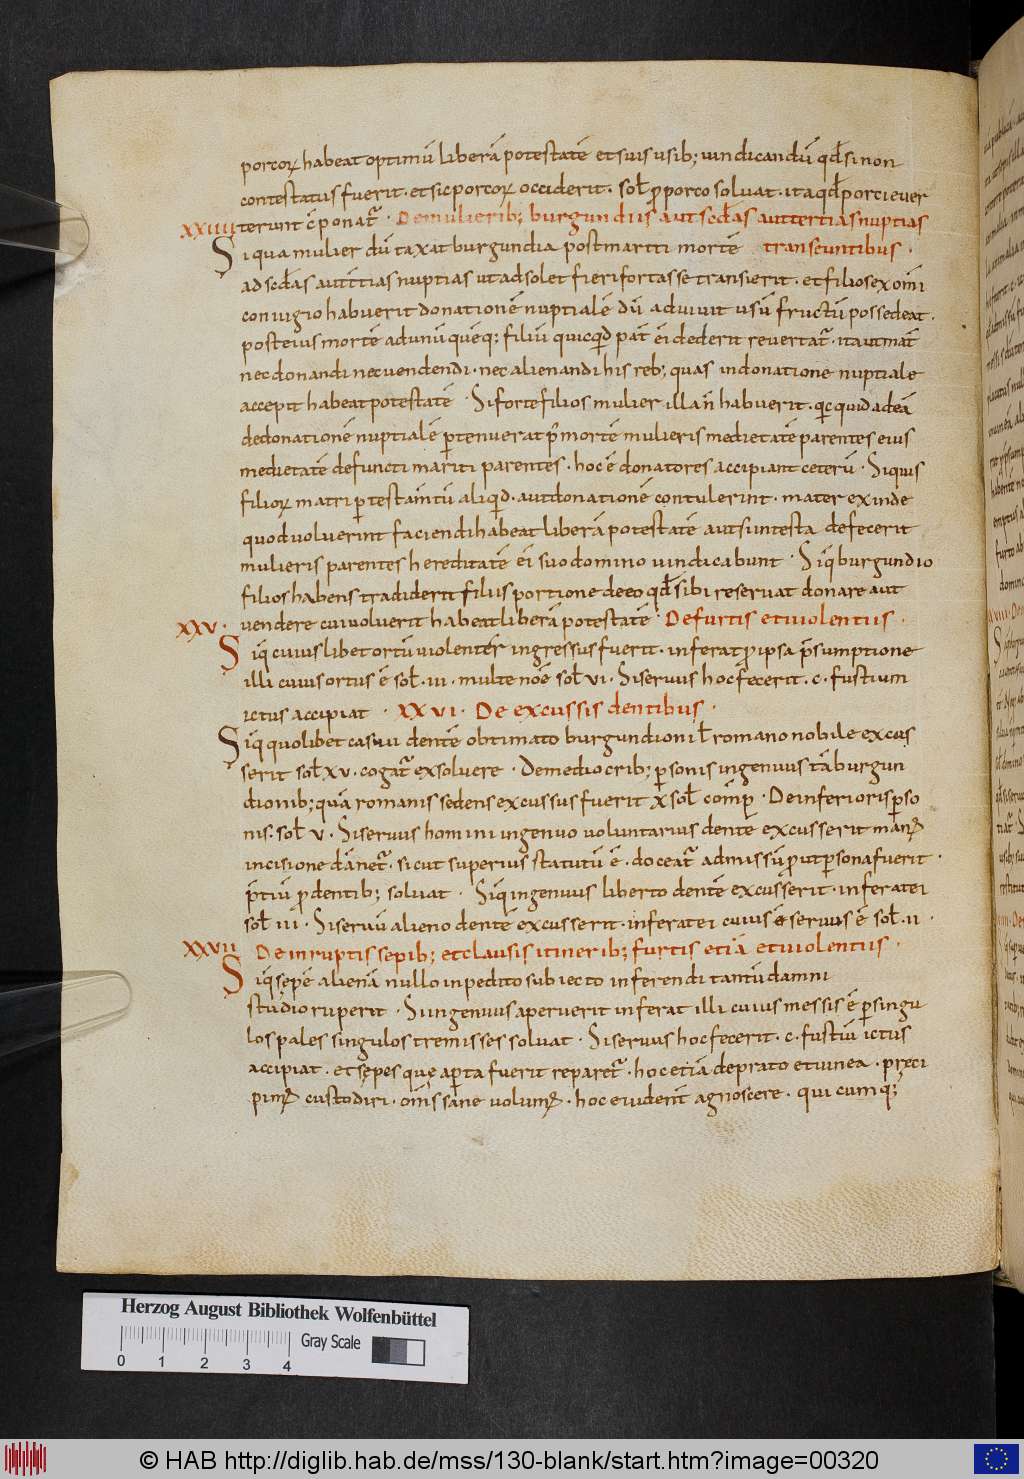 porcoꝝ habeat optimū liberā potestatē et suis usib; uindicandū qđ si non
contestatus fuerit · et sic porcoꝝ occiderit · sol̄ ꝓ porco soluat · ita qđ porci euer
xxiiii terunt cōponat᷑ · De mulierib; burgundiis aut scđas aut tertias nuptias
Siqua mulier dūtaxat burgundia post mariti mortē transeuntibus ·
ad scđas aut t̄tias nuptias ut adsolet fieri fortasse transierit · et filios ex om̄i
coniugio habuerit donationē nuptialē dū aduiuit usū fructū possedeat ·
post eius mortē ad unū quēq; filiū quicqđ pat̄ ei dederit reuertat᷑ · ita ut mat̄
nec donandi nec uendendi · nec alienandi his reb; quas in donatione nuptiale
accepit habeat potestatē · Si forte filios mulier illa n̄ habuerit · qicquid ad eā
de donationē nuptialē ꝑtenuerat p̄ mortē mulieris medietatē parentes eius
medietatē defuncti mariti parentes · hoc ē donatores accipiant ceterū · Siquis
filioꝝ matri ꝑ testam̄tū aliqđ · aut donationē contulerint · mater exinde
quod uoluerint faciendi habeat liberā potestatē aut si intesta defecerit
mulieris parentes hereditatē ei suo domino uindicabunt · Siq̄ burgundio
filios habens tradiderit filiis portione de eo qđ sibi reseruat donare aut
xxv · uendere cui uoluerit habeat liberā potestatē · De furtis et uiolentiis ·
Siq̄ cuiuslibet ortū uiolenter ingressus fuerit · inferat ꝓ ipsa p̄sumptione
illi cuius ortus ē sol̄ · iii · multe noīe sol̄ vi · Si seruus hoc fecerit · c · fustium
ictus accipiat · xxvi · De excussis dentibus ·
Siq̄ quolibet casu ui dentē obtimato burgundioni ł romano nobile excus
serit sol̄ xv · cogat᷑ exsoluere · De mediocrib; ꝑsonis ingenuis tā burgun
dionib; quā romanis se dens excussus fuerit x sol̄ cōmp̄ · De inferioris ꝑso
nis · sol̄ v · Si seruus homini ingenuo uoluntarius dente excusserit man
incisione dānet᷑ · sicut superius statutū ē · doceat᷑ admissū ꝓut ꝑsona fuerit ·
p̄tiū ꝓ dentib; soluat · Siq̄ ingenuus liberto dentē excusserit · inferat ei
sol̄ iii · Si seruū alieno dentē excusserit · inferat ei cuius ē seruus ē sol̄ · ii ·
xxvii De inruptis sepib; et clausis itinerib; furtis etiā et uiolentiis ·
Siq̄ sępē alienā nullo inpedito subiecto inferendi tantū damni
studio ruperit · Si ingenuus aperuerit inferat illi cuius messis ē ꝑ singu
los pales singulos tremisses soluat · Si seruus hoc fecerit · c · fustiū ictus
accipiat · et sępes quę aꝑta fuerit reparet᷑ · hoc etiā de prato et uinea · pręci
pim᷒ custodiri · om̄s sane volum᷒ · hoc euident̄ agnoscere · qui cumq;
Herzog August Bibliothek Wolfenbüttel
Gray Scale
0 1 2 3 4
© HAB http://diglib.hab.de/mss/130-blank/start.htm?image=00320